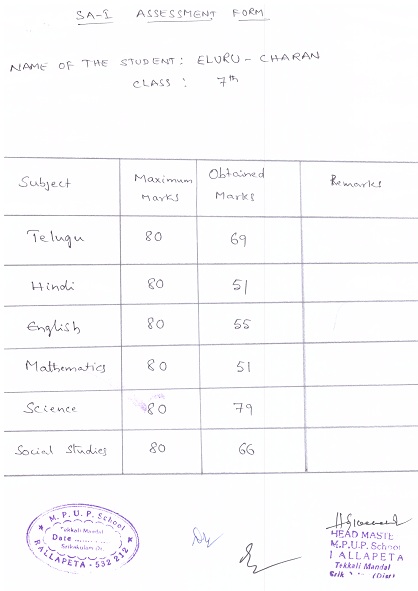 SA-I ASSESSMENT FORM
NAME OF THE STUDENT: ELURU - CHARAN
CLASS: 7th
Subject Maximum Marks Obtained Marks Remarks
Telugu 80 69
Hindi 80 51
English 80 55
Mathematics 80 51
Science 80 79
Social Studies 80 66
M.P.U.P. School
Tekkali Mandal
Date
Srikakulam Dt.
RALLAPETA - 532 212
HEAD MASTE
M.P.U.P. School
ALLAPETA
Tekkali Mandal
Srik (Dist)